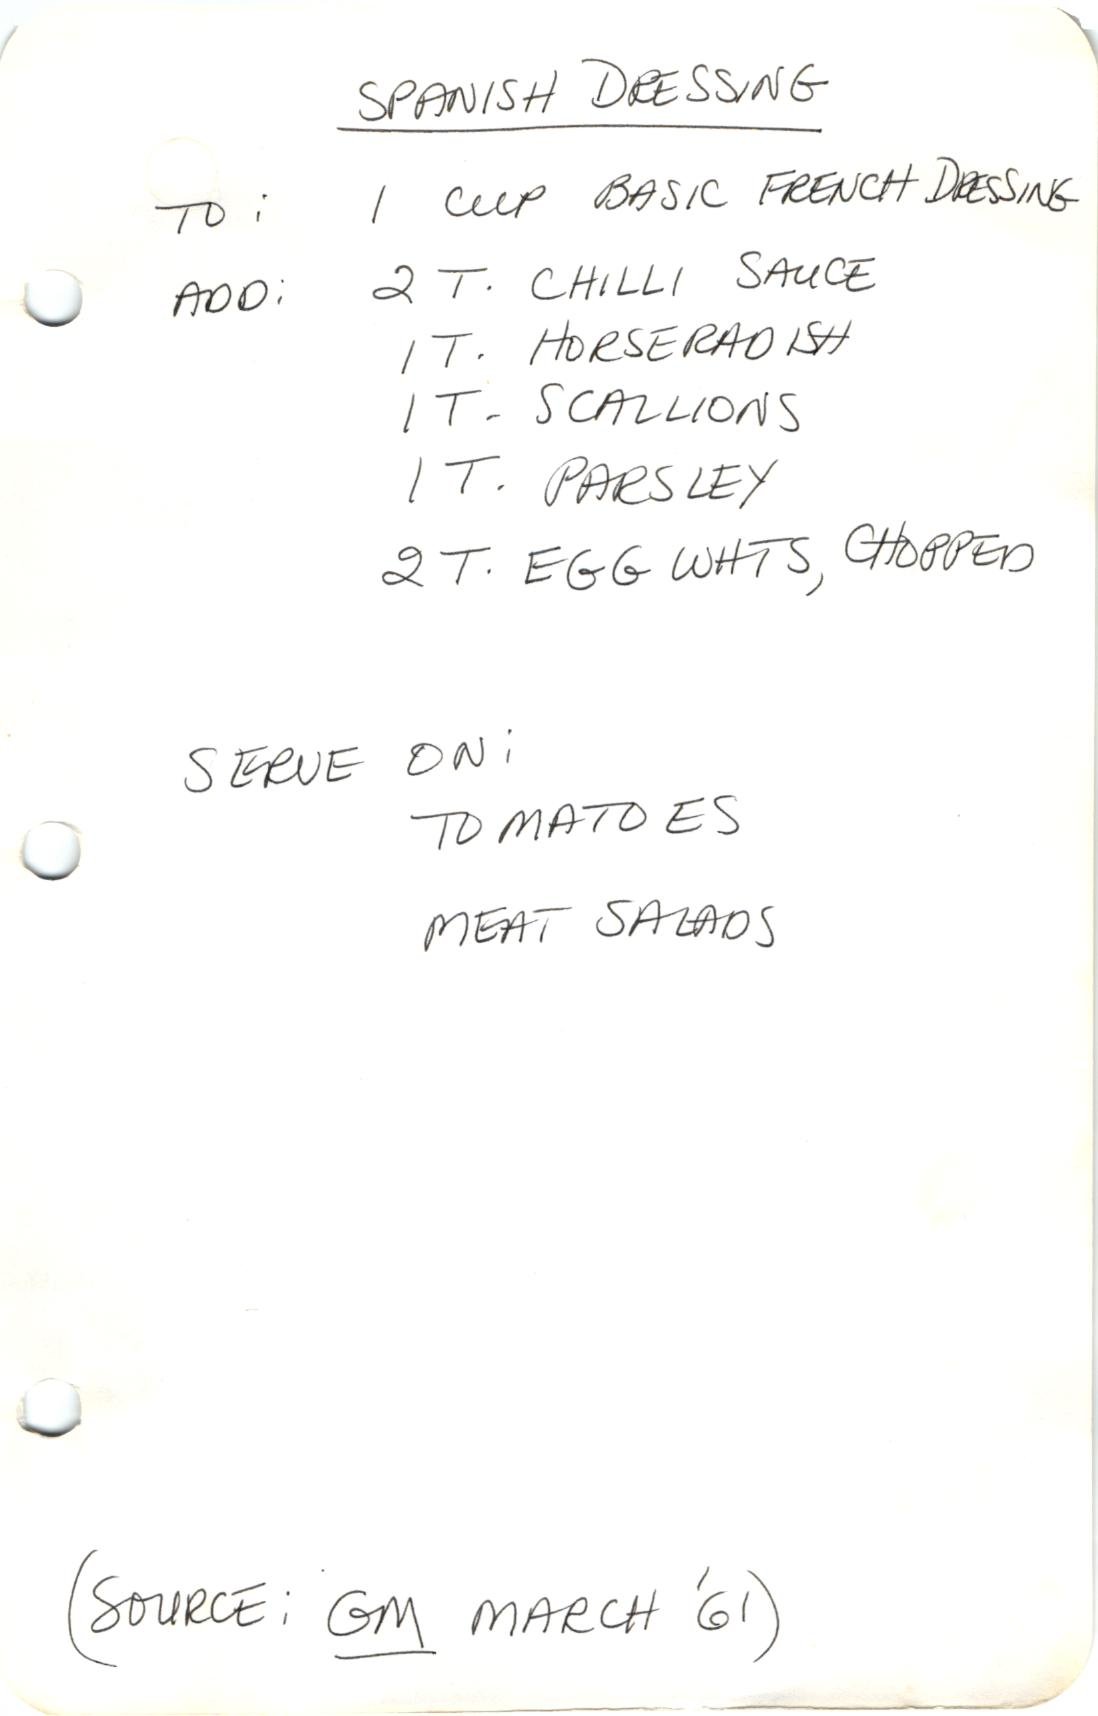 SPANISH DRESSING
TO: 1 CUP BASIC FRENCH DRESSING
ADD: 2 T. CHILLI SAUCE
1 T. HORSERADISH
1 T. SCALLIONS
1 T. PARSLEY
2 T. EGG WHTS, CHOPPED
SERVE ON:
TOMATOES
MEAT SALADS
(SOURCE: GM MARCH '61)